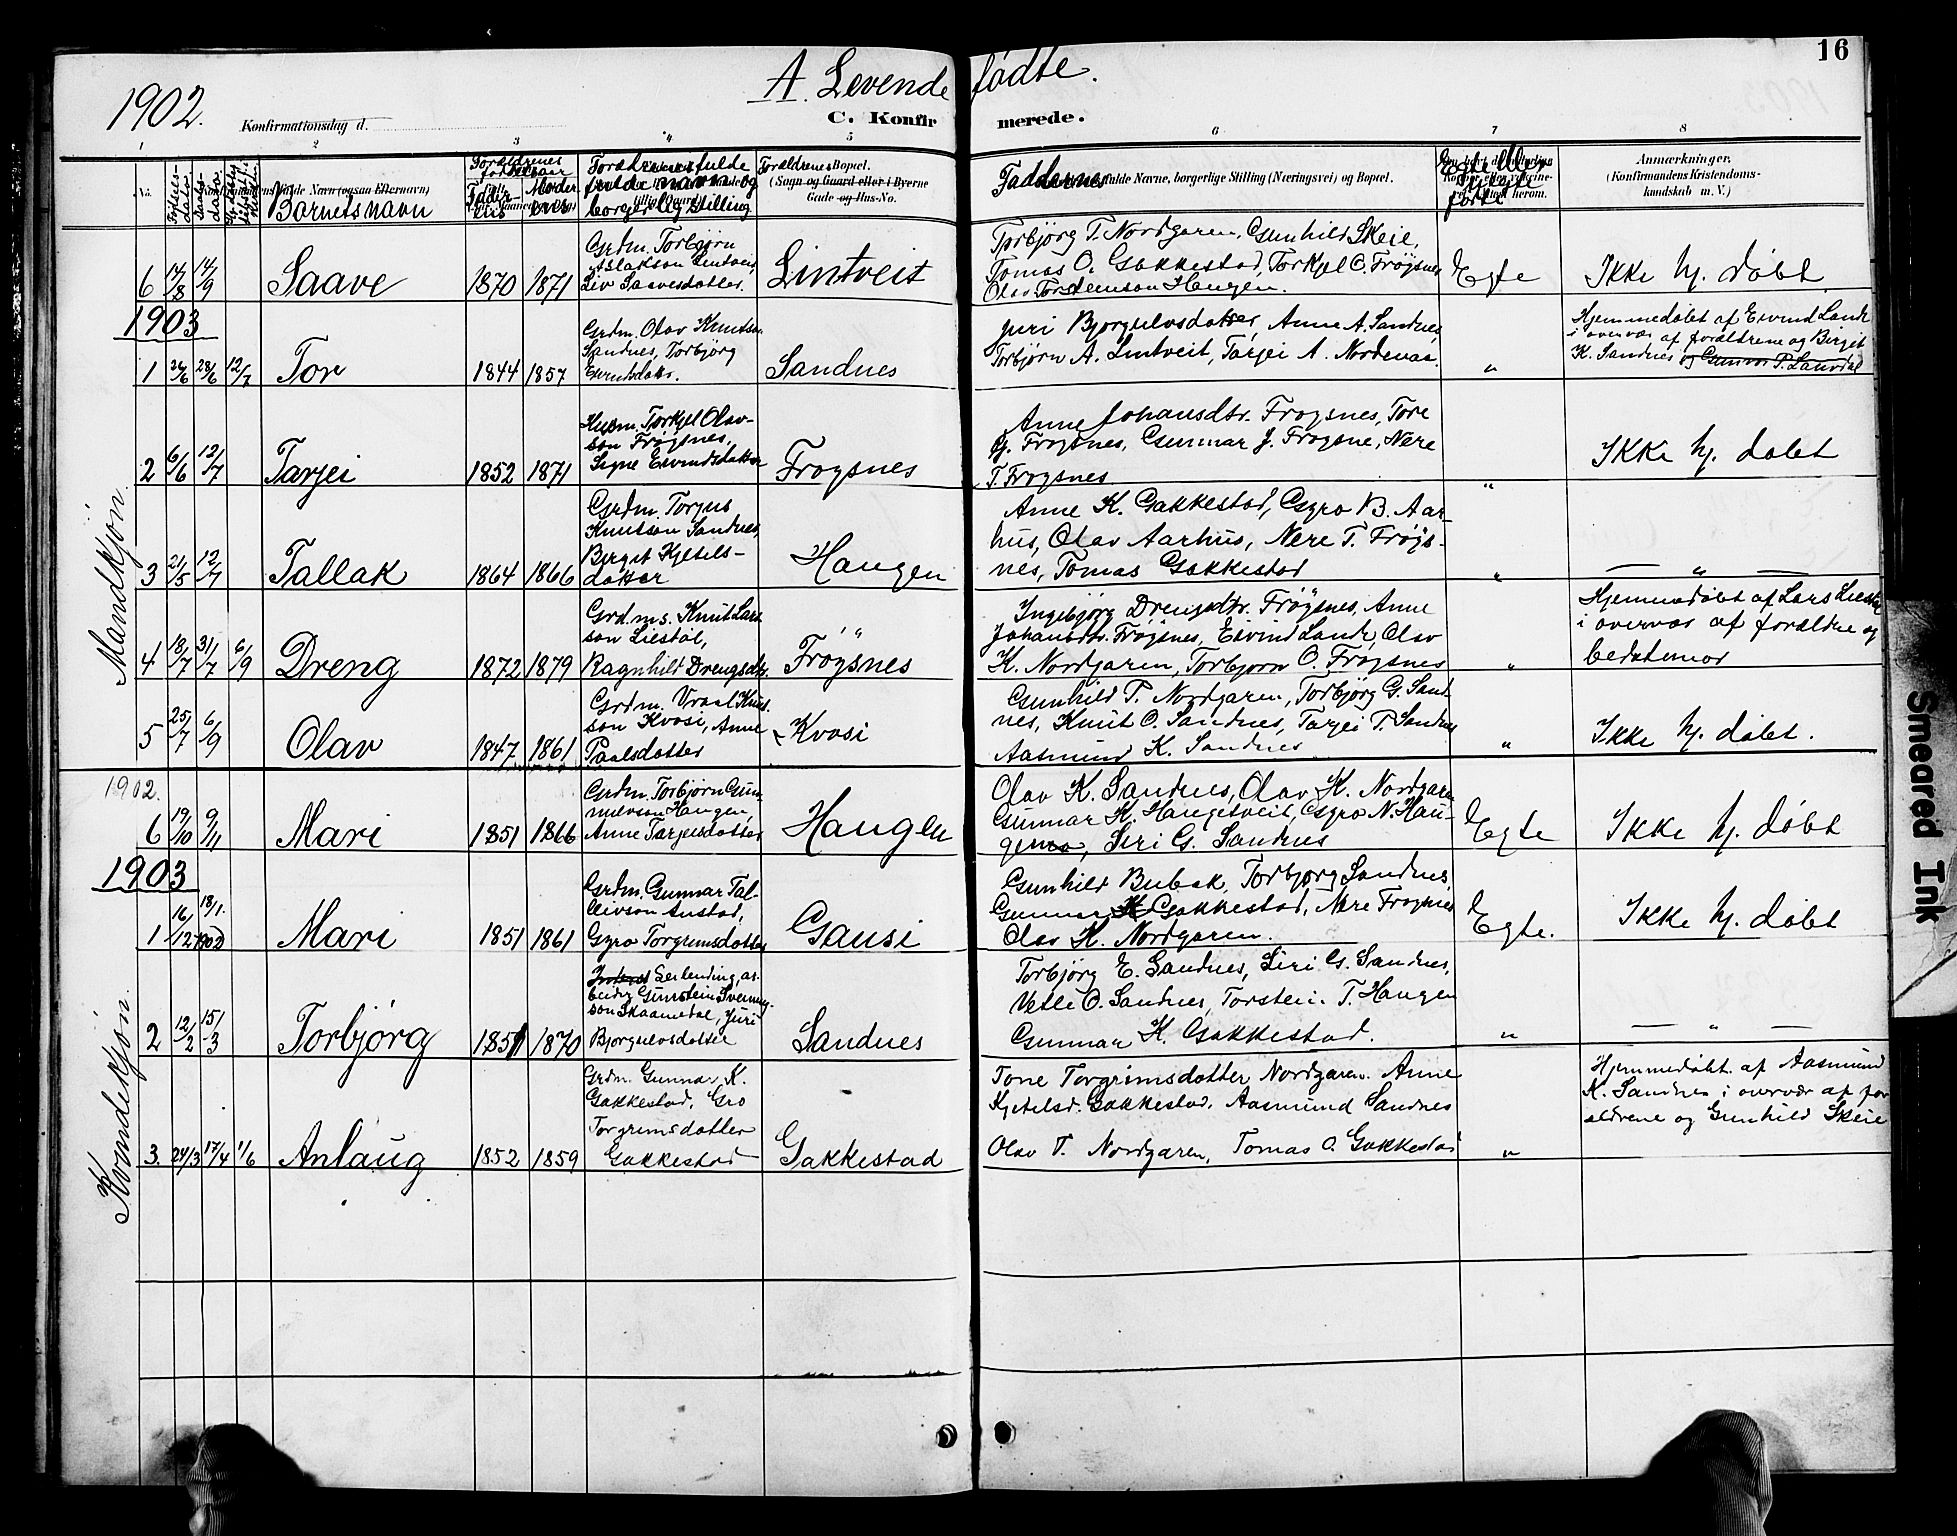 16
1902.
A. Levende fødte.
Konfirmationsdag d.
C. Konfirmerede.
1 2 3 4 5 6 7 8
No.
Barnets navn
Forældrenes
Forældrenes Bopæl.
(Sogn og Gaard eller i Byerne
Gade og Hus-No.
Faddernes fulde Navne, borgerlige Stilling (Næringsvei) og Bopæl.
Anmærkninger.
(Konfirmandens Kristendoms-
kundskab m. V.)
Mandkjön.
6 14/8 14/9 Saave 1870 1871
Grdm. Torbjørn
Aslakson Lintveit
Liv Saavesdotter.
Lintveit
Torbjörg T. Nordgaren, Gunhild Skeie,
Tomas O. Gakkestad, Torkjel O. Frøysnes
Olav Torsteinson Haugen.
Egte
Ikke hj. døbt.
1903
1 26/6 28/6 12/7 Tor 1844 1857
Grdm. Olav Knutson
Sandnes, Torbjörg
Eivindsdotter.
Sandnes
Juri Bjorgulvsdotter, Anne A. Sandnes
Torbjörn A. Lintveit, Tarjei A. Nordenaa.
"
Hjemmedøbt af Eivind Lande
i overvær af forældrene og Birget
K. Sandnes og Gunvor P. Laurdal
2 6/6 12/7 Tarjei 1852 1871
Husm. Torkjel Olav-
son Frøysnes,
Signe Eivindsdotter
Froysnes
Anne Johansdtr. Froysnes, Tore
Froysnes, Gunnar J. Froysne, Nere
T. Froysnes
"
Ikke hj. døbt
3 21/5 12/7 Tallak 1864 1866
Grdm. Torjus
Knutson Sandnes,
Birget Kjetels-
dotter
Haugen
Anne K. Gakkestad, Gyro B. Aar-
hus, Olav Aarhus, Nere T. Frøys-
nes, Tomas Gakkestad
"
— " —
4 18/7 31/7 6/9 Dreng 1872 1879
Grdms. Knut Lars
son Liestøl,
Ragnhild Drengsdtr.
Frøysnes
Ingebjörg Drengsdtr. Frøysnes, Anne
Johansdtr. Frøysnes, Eivind Lande, Olav
K. Nordgaren, Torbjørn O. Frøysnes
"
Hjemmedøbt af Lars Liestøl
i overvær af forældre og
bedstemor
5 25/7 6/9 Olav 1847 1861
Grdm. Vraal Knut
son Kvasi, Anne
Paalsdotter
Kvasi
Gunhild T. Nordgaren, Torbjörg G. Sand
nes, Knut O. Sandnes, Tarjei T. Sandnes
Aasmund K. Sandnes
"
Ikke hj. døbt.
Kvindekjön.
1902.
6 19/10 9/11 Mari 1851 1866
Grdm. Torbjörn Gun
nulvson Haugen,
Anne Tarjeisdotter
Haugen
Olav K. Sandnes, Olav K. Nordgaren
Gunnar K. Haugetveit, Gyro N. Hau-
gen, Siri G. Sandnes
Egte
Ikke hj. døbt
1903
1 16/12 1902 18/1. Mari 1851 1861
Grdm. Gunnar Tal-
leivson Austad,
Gyro Torgrimsdotter
Gausi
Gunhild Bubak, Torbjorg Sandnes,
Gunnar K Gakkestad, Nere Froysnes
Olav K. Nordgaren.
Egte.
Ikke hj. døbt
2 12/2 15/3 Torbjörg 1851 1870
Inderst Serlending, ar-
beider Gunstein Sveinung-
son Skaamedal, Juri
Bjorgulvsdotter
Sandnes
Torbjörg E. Sandnes, Siri G. Sandnes,
Vetle O. Sandnes, Torstein T. Haugen
Gunnar K. Gakkestad.
"
— " —
3. 24/3 17/4 1/6 Anlaug 1852 1859
Grdm. Gunnar K.
Gakkestad, Gro
Torgrimsdotter
Gakkestad
Gakkestad
Tone Torgrimsdotter Nordgaren. Anne
Kjetelsd. Gakkestad, Aasmund Sandnes
Olav T. Nordgaren, Tomas O. Gakkestad
"
Hjemmedøbt af Aasmund
K. Sandnes i overvær af for
ældrene og Gunhild Skeie
Smeared Ink